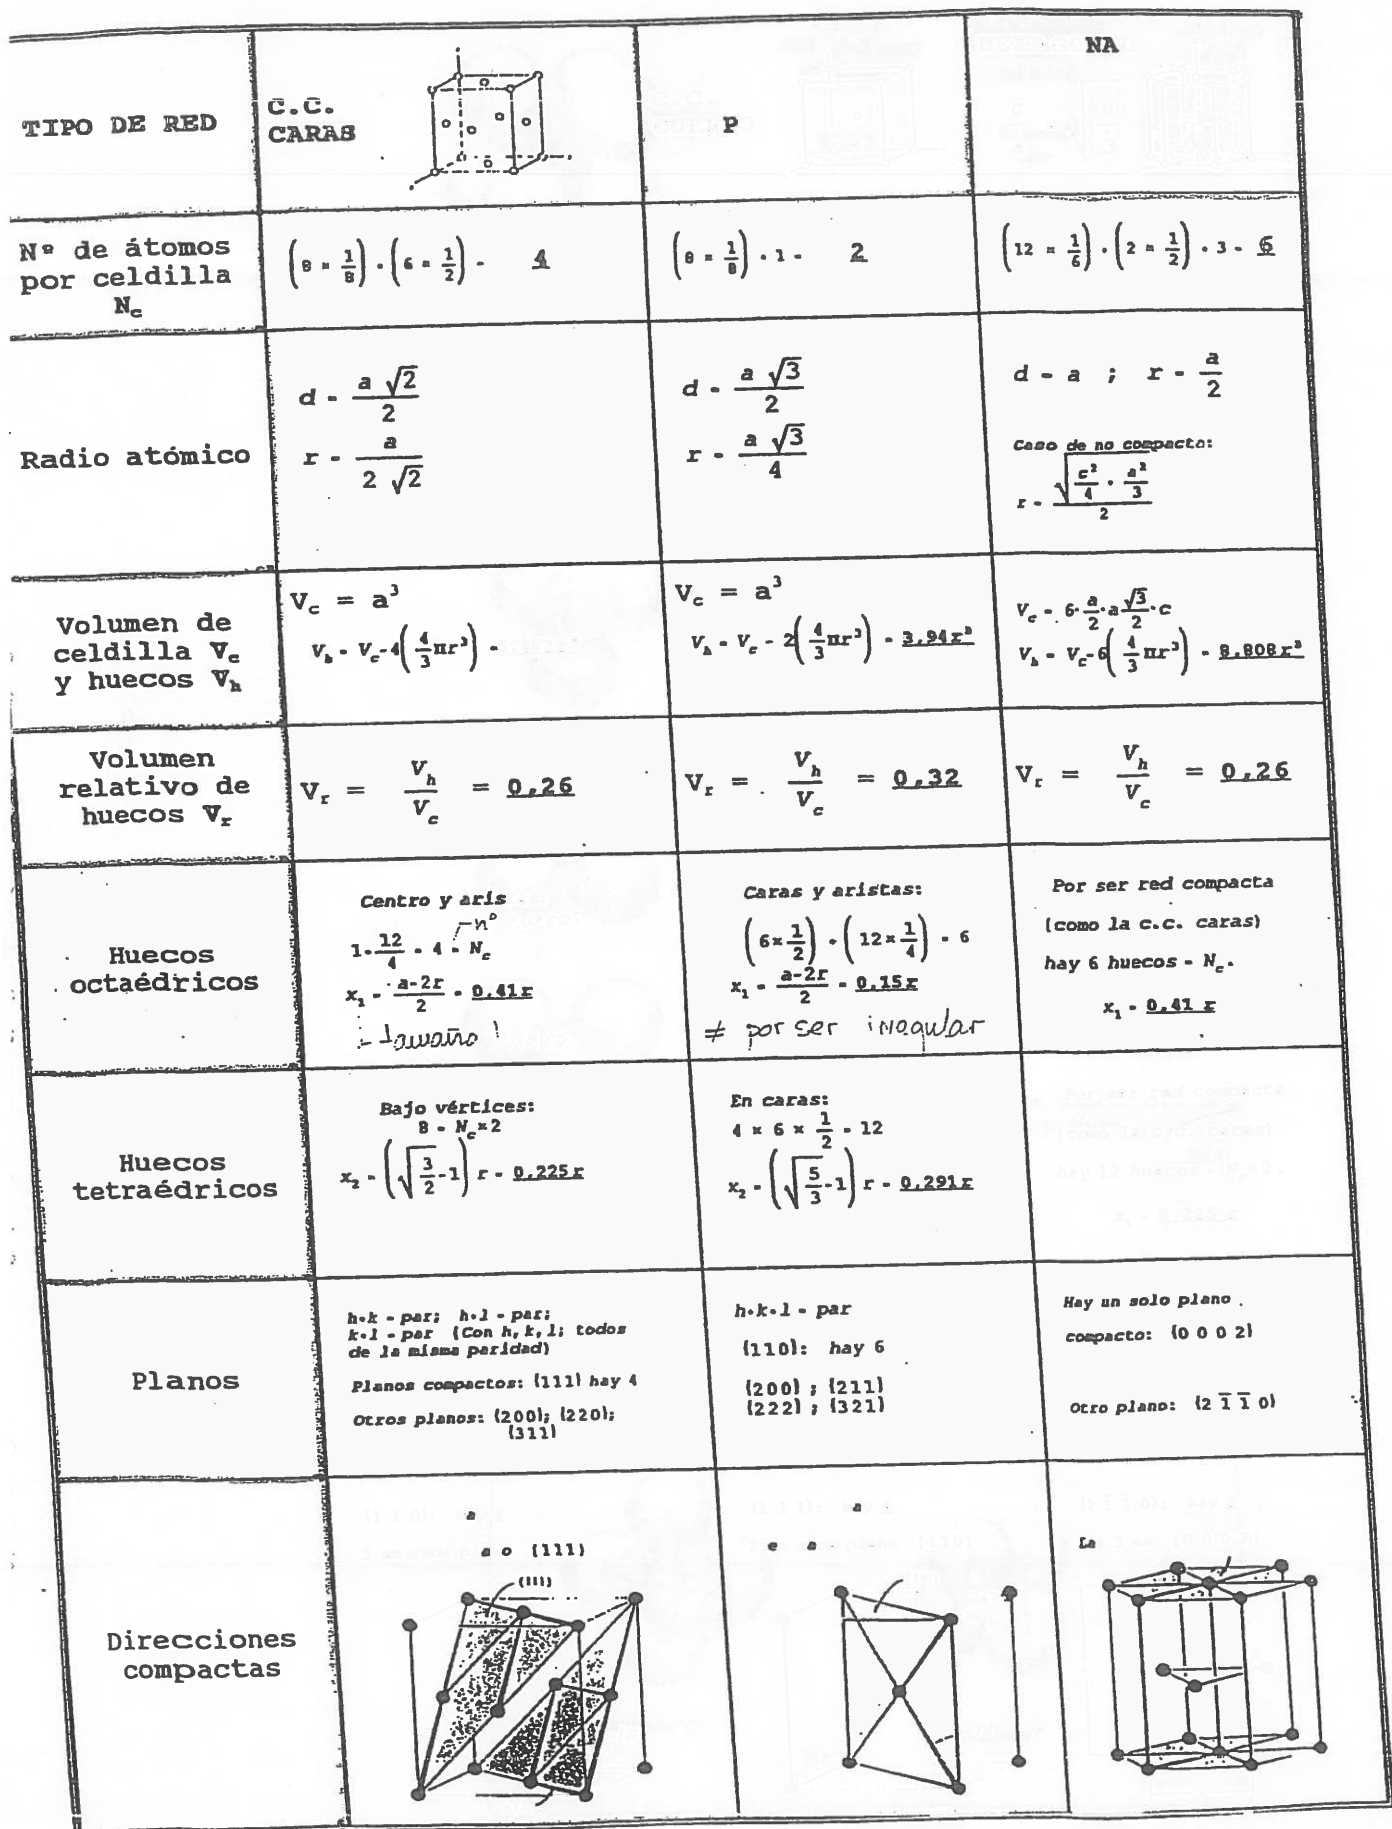 TIPO DE RED
C.C.
CARAS
P
NA
Nº de átomos
por celdilla
N_c
(8 × 1/8) + (6 × 1/2) = 4
(8 × 1/8) + 1 = 2
(12 × 1/6) + (2 × 1/2) + 3 = 6
Radio atómico
d = a √2 / 2
r = a / 2 √2
d = a √3 / 2
r = a √3 / 4
d = a ; r = a/2
Caso de no compacto:
r = √(c²/4 + a²/3) / 2
Volumen de
celdilla V_c
y huecos V_h
V_c = a³
V_h = V_c - 4(4/3 πr³) =
V_c = a³
V_h = V_c - 2(4/3 πr³) = 3,94r³
V_c = 6·a/2·a √3/2·c
V_h = V_c - 6(4/3 πr³) = 8.808r³
Volumen
relativo de
huecos V_r
V_r = V_h / V_c = 0,26
V_r = V_h / V_c = 0,32
V_r = V_h / V_c = 0,26
Huecos
octaédricos
Centro y aris
nº
1 + 12/4 = 4 = N_c
x₁ = a-2r / 2 = 0,41r
tamaño
Caras y aristas:
(6 × 1/2) + (12 × 1/4) = 6
x₁ = a-2r / 2 = 0,15r
≠ por ser irregular
Por ser red compacta
(como la c.c. caras)
hay 6 huecos = N_c.
x₁ = 0,41 r
Huecos
tetraédricos
Bajo vértices:
8 = N_c × 2
x₂ = (√(3/2) - 1) r = 0,225r
En caras:
4 × 6 × 1/2 = 12
x₂ = (√(5/3) - 1) r = 0,291r
Por ser red compacta
(como la c.c. caras)
hay 12 huecos = N_c × 2.
x₁ = 0,225 r
Planos
h+k = par; h+l = par;
k+l = par (Con h,k,l; todos
de la misma paridad)
Planos compactos: {111} hay 4
Otros planos: {200}; {220};
{311}
h+k+l = par
{110}: hay 6
{200} ; {211}
{222} ; {321}
Hay un solo plano
compacto: {0 0 0 2}
Otro plano: {2 1̅ 1̅ 0}
Direcciones
compactas
a
a o {111}
(111)
a
e a
La